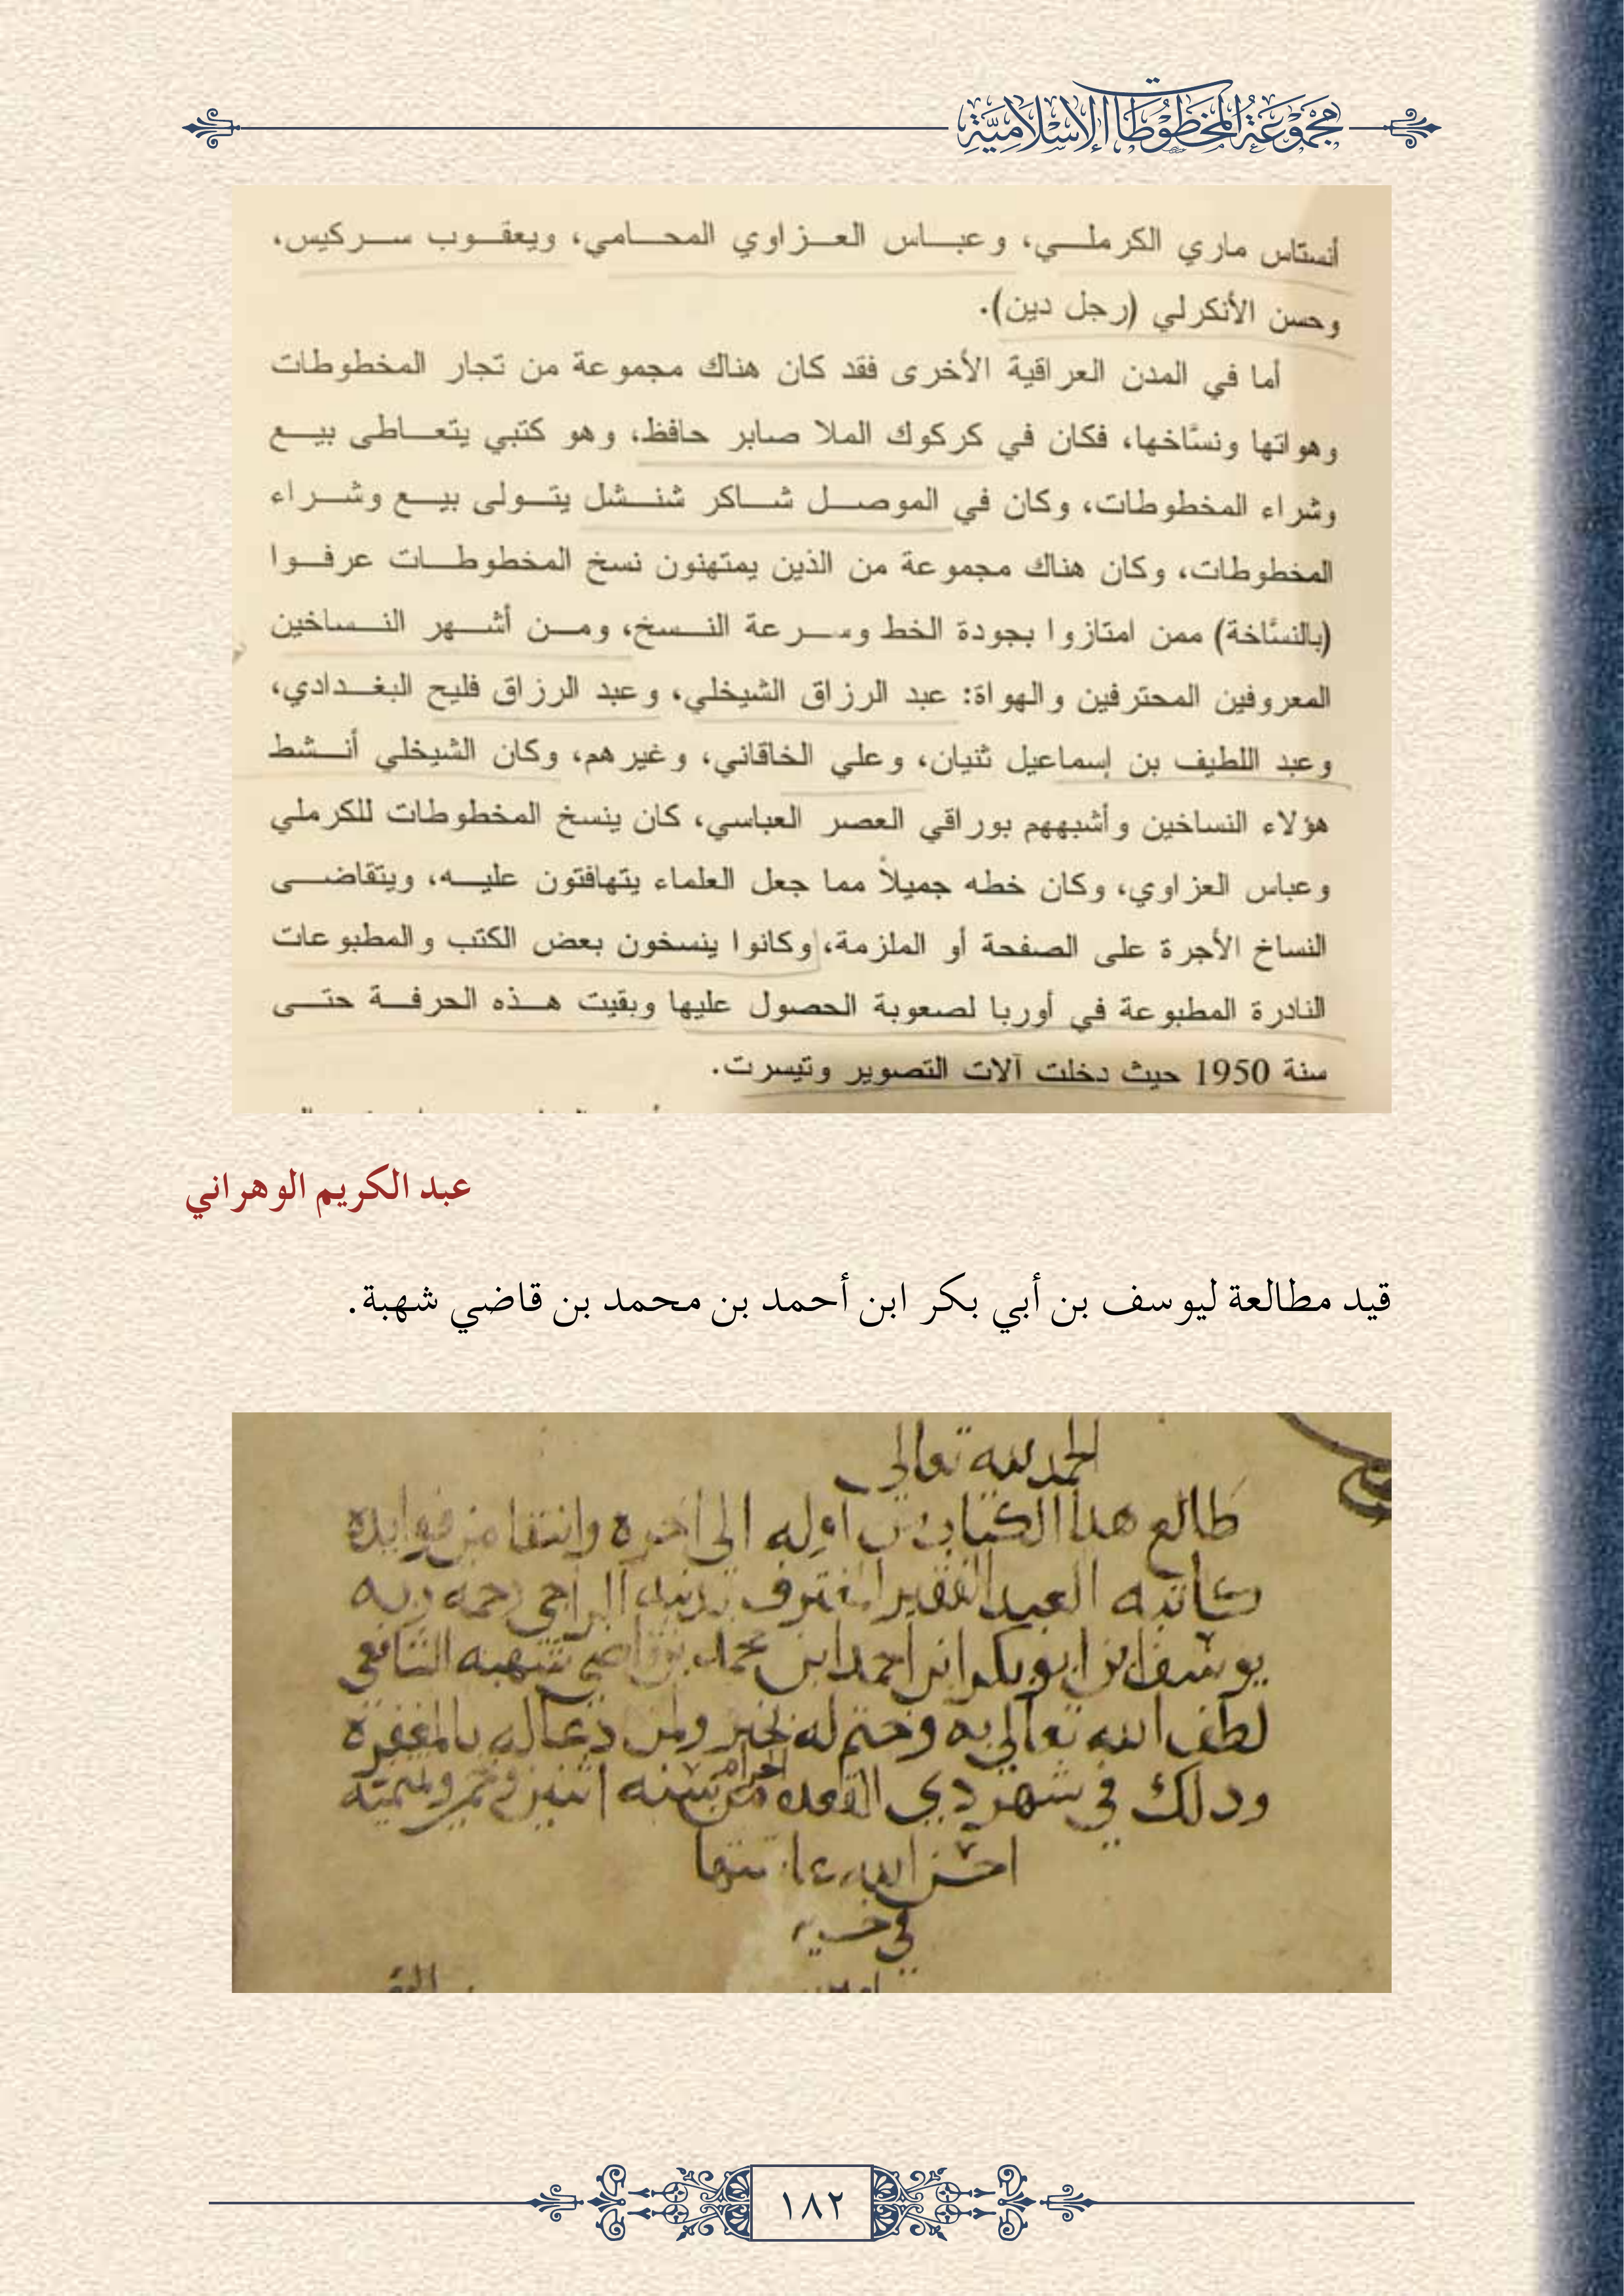 مجموعة المخطوطات الإسلامية
أنستاس ماري الكرملـــي، وعبـــاس العـــزاوي المحـــامي، ويعقـــوب ســـركيس،
وحسن الأنكرلي (رجل دين).
أما في المدن العراقية الأخرى فقد كان هناك مجموعة من تجار المخطوطات
وهواتها ونسَّاخها، فكان في كركوك الملا صابر حافظ، وهو كتبي يتعـــاطى بيـــع
وشراء المخطوطات، وكان في الموصـــل شـــاكر شنـــشل يتـــولى بيـــع وشـــراء
المخطوطات، وكان هناك مجموعة من الذين يمتهنون نسخ المخطوطـــات عرفـــوا
(بالنسَّاخة) ممن امتازوا بجودة الخط وســـرعة النـــسخ، ومـــن أشـــهر النـــساخين
المعروفين المحترفين والهواة: عبد الرزاق الشيخلي، وعبد الرزاق فليح البغـــدادي،
وعبد اللطيف بن إسماعيل ثنيان، وعلي الخاقاني، وغيرهم، وكان الشيخلي أنـــشط
هؤلاء النساخين وأشبههم بوراقي العصر العباسي، كان ينسخ المخطوطات للكرملي
وعباس العزاوي، وكان خطه جميلاً مما جعل العلماء يتهافتون عليـــه، ويتقاضـــى
النساخ الأجرة على الصفحة أو الملزمة، وكانوا ينسخون بعض الكتب والمطبوعات
النادرة المطبوعة في أوربا لصعوبة الحصول عليها وبقيت هـــذه الحرفـــة حتـــى
سنة 1950 حيث دخلت آلات التصوير وتيسرت.
عبد الكريم الوهراني
قيد مطالعة ليوسف بن أبي بكر ابن أحمد بن محمد بن قاضي شهبة.
الحمد لله تعالى
طالع هدا الكتاب من اوله الى اخره وانتقا من فوايده
كاتبه العبد الفقير المعترف بدنبه الراجي رحمه ربه
يوسف ابن ابو بكر ابن احمد ابن محمد بن قاضي شهبه الشافعي
لطف الله تعالى به وختم له بخير ولمن دعا له بالمغفره
ودلك في شهر دي القعده الحرام من سنه اثنين
احسن الله عاقبتها
في خير
امين
١٨٢